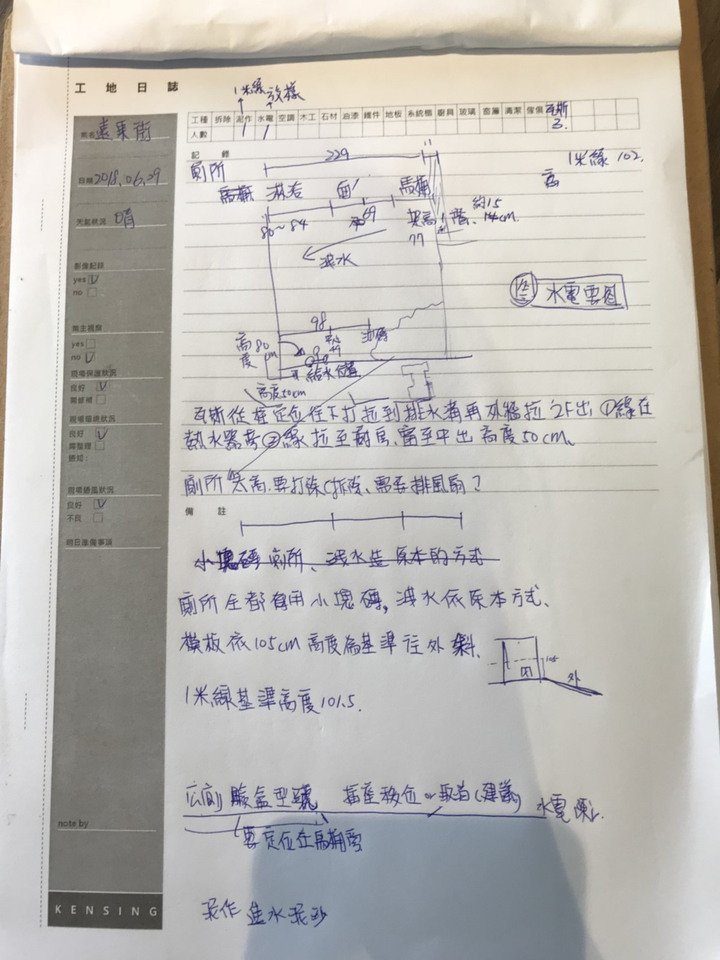 工地日誌
1米線 放樣
工種 拆除 泥作 水電 空調 木工 石材 油漆 鐵件 地板 系統櫃 廚具 玻璃 窗簾 清潔 傢俱 瓦斯
人數 1 1 3
案名 遠東街
日期 2018.06.29
天氣狀況 晴
影像記錄
yes
no
業主視察
yes
no
現場保護狀況
良好
需修補
現場環境狀況
良好
需整理
通知:
良好
不良
明日進場事項
note by
KENSING
記錄
229
1米線102.
廁所
馬桶 淋浴 面 馬桶
80~84
69
架高1階、約15
14cm.
77
洩水
水電要图
98
高80
度 cm
給水位置
高度50cm
熱水器旁②線拉至廚房,窗至中出高度50cm、
廁所太高,要打除(拆除、需要排風扇?
備註
小塊磚廁所、洩水依原本的方式
廁所全都有用小塊磚,洩水依原本方式、
模板依105cm高度為基準往外斜、
105
內
外
1米線基準高度101.5
公廁臉盆型號 插座移位or取消(建議) 水電
要定位在馬桶旁
泥作 進水泥沙